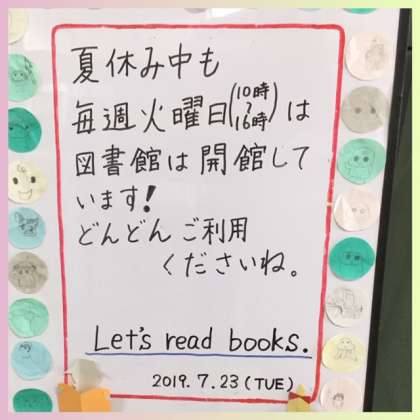 夏休み中も
毎週火曜日(10時〜16時)は
図書館は開館して
います!
どんどんご利用
くださいね。
Let's read books.
2019.7.23(TUE)